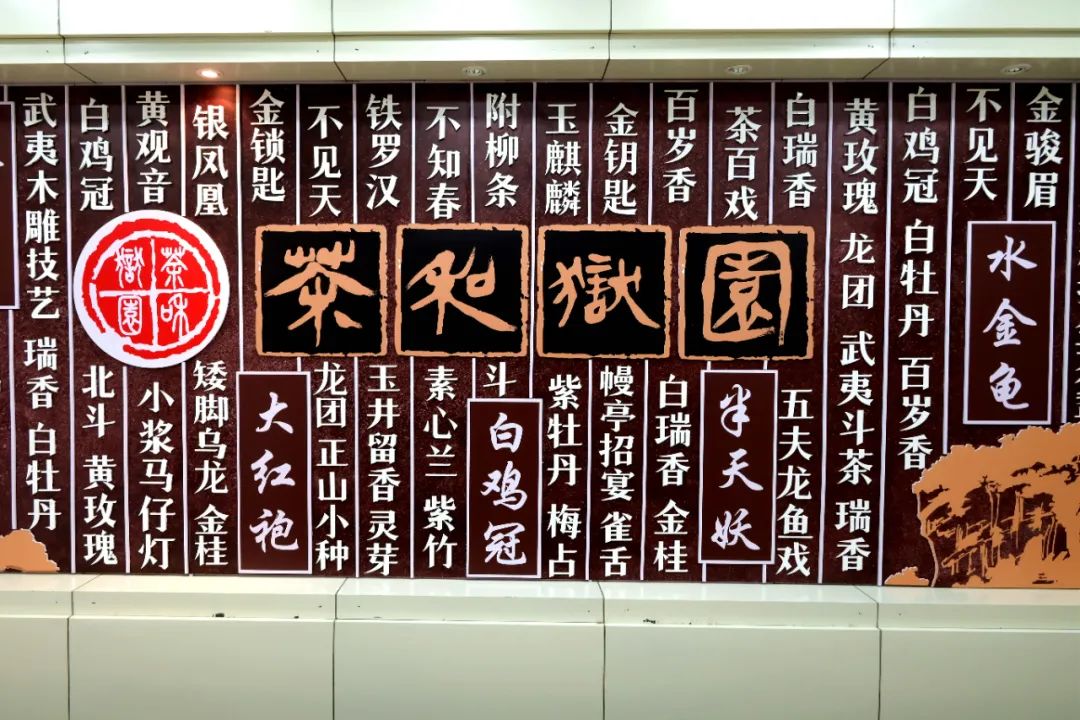 武夷木雕技艺 瑞香 白牡丹
白鸡冠
黄观音
银凤凰
金锁匙
不见天
铁罗汉
不知春
附柳条
玉麒麟
金钥匙
百岁香
茶百戏
白瑞香
黄玫瑰 龙团 武夷斗茶 瑞香
白鸡冠 白牡丹 百岁香
不见天
金骏眉
茶和
嶽園
茶和嶽園
北斗 黄玫瑰
小浆马仔灯
矮脚乌龙 金桂
大红袍
龙团 正山小种
玉井留香 灵芽
素心兰 紫竹
斗
白鸡冠
紫牡丹 梅占
幔亭招宴 雀舌
白瑞香 金桂
半天妖
五夫龙鱼戏
水金龟